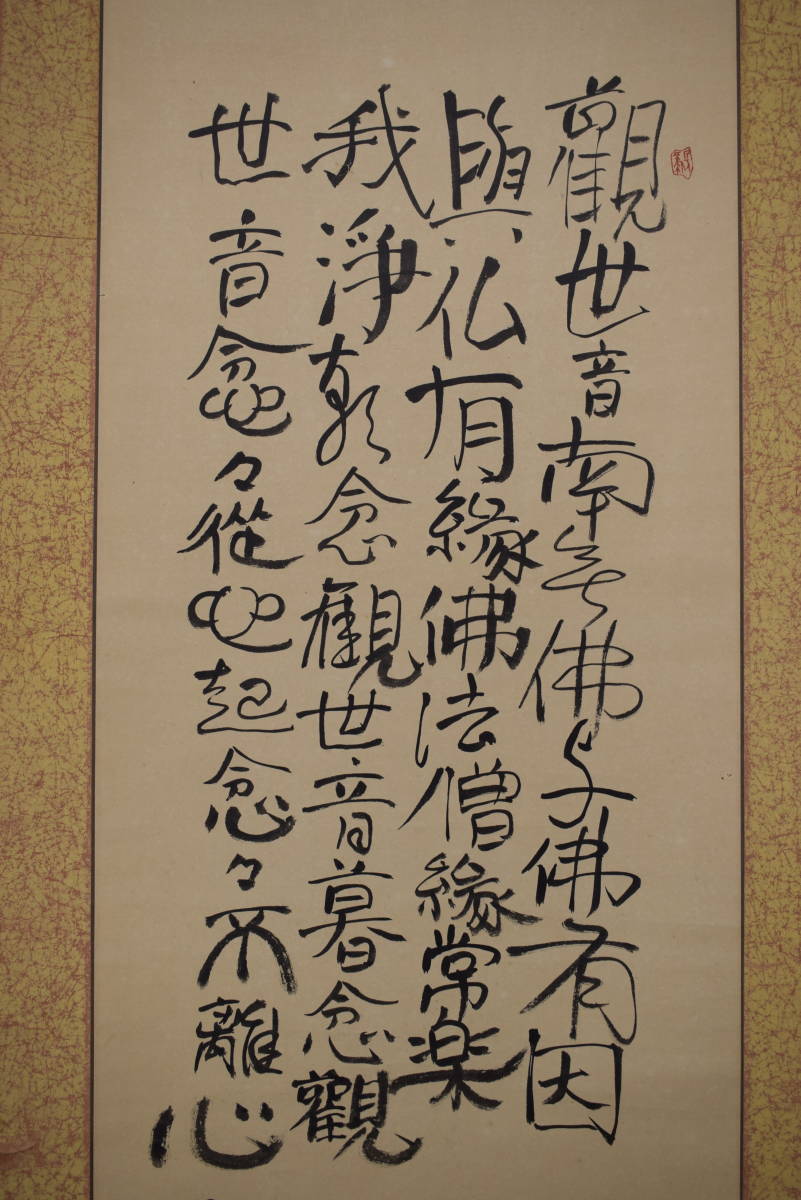 觀世音南無佛与佛有因
與仏有緣佛法僧緣常楽
我淨朝念觀世音暮念觀
世音念々從心起念々不離心